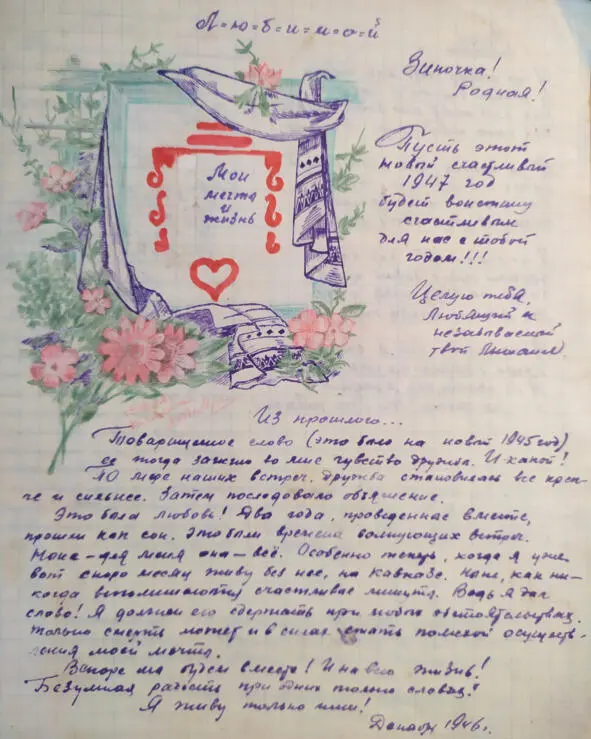 Л=ю=б=и=м=о=й
Зиночка!
Родная!
Мои
мечта
и
жизнь
Пусть этот
новый счастливый
1947 год
будет воистину
счастливым
для нас с тобой
годом!!!
Целую тебя,
Любящий и
незабываемый
твой
Из прошлого...
Товарищеское слово (это было на новый 1945 год)
ее тогда зажгло во мне чувство дружбы. И какой!
По мере наших встреч, дружба становилась все креп-
че и сильнее. Затем последовало объяснение.
Это была любовь! Два года, проведенные вместе,
прошли как сон. Это были времена волнующих встреч.
для меня она - всё. Особенно теперь, когда я уже
вот скоро месяц живу без нее, на Кавказе. как ни-
когда вспоминаются счастливые минуты. Ведь я дал
слово! Я должен его сдержать при любых обстоятельствах.
Только смерть может и в силах стать помехой осущест-
вления моей мечты.
Вскоре мы будем вместе! И на всю жизнь!
Безумная радость при одних только словах!
Я живу только ими!
Декабрь 1946г.